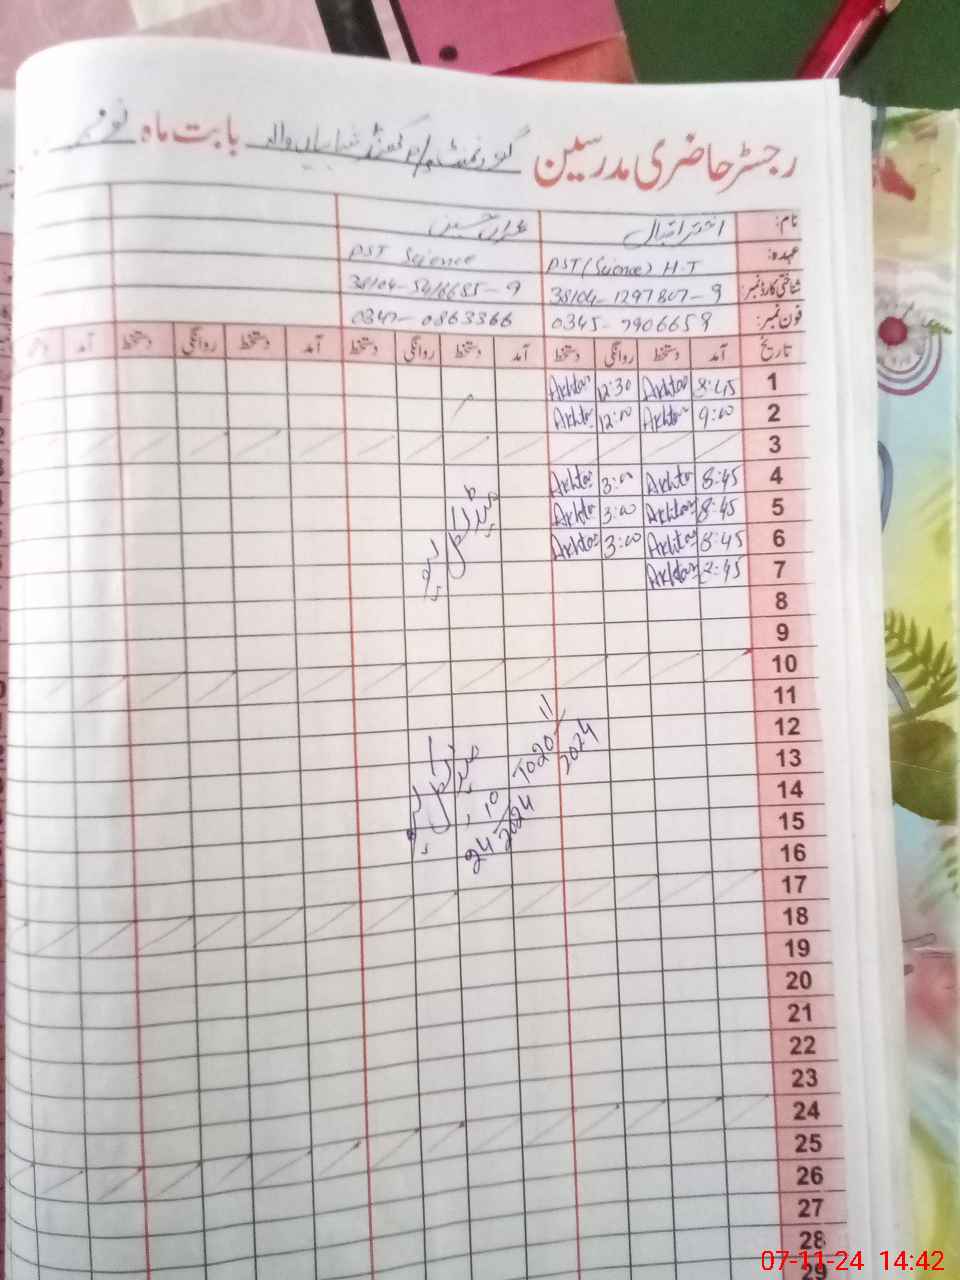 رجسٹر حاضری مدرسین گورنمنٹ بابت ماہ نومبر
نام: اختر اقبال
عہدہ: PST (Science) H.T PST Science
شناختی کارڈ نمبر: 38104-1297807-9
فون نمبر: 0345-7906659 0347-0863366
تاریخ آمد دستخط روانگی دستخط آمد دستخط روانگی دستخط آمد دستخط روانگی دستخط آمد
1 8:45 Akhtar 12:30 Akhtar
2 9:00 Akhtar 12:00 Akhtar
3
4 8:45 Akhtar 3:00 Akhtar
5 8:45 Akhtar 3:00 Akhtar
6 8:45 Akhtar 3:00 Akhtar
7 Akhtar
8
9
10
11
12
13
14
15
16
17
18
19
20
21
22
23
24
25
26
27
28
29
میڈیکل لیو
میڈیکل لیو
24/10/2024 To 20/11/2024
07-11-24 14:42